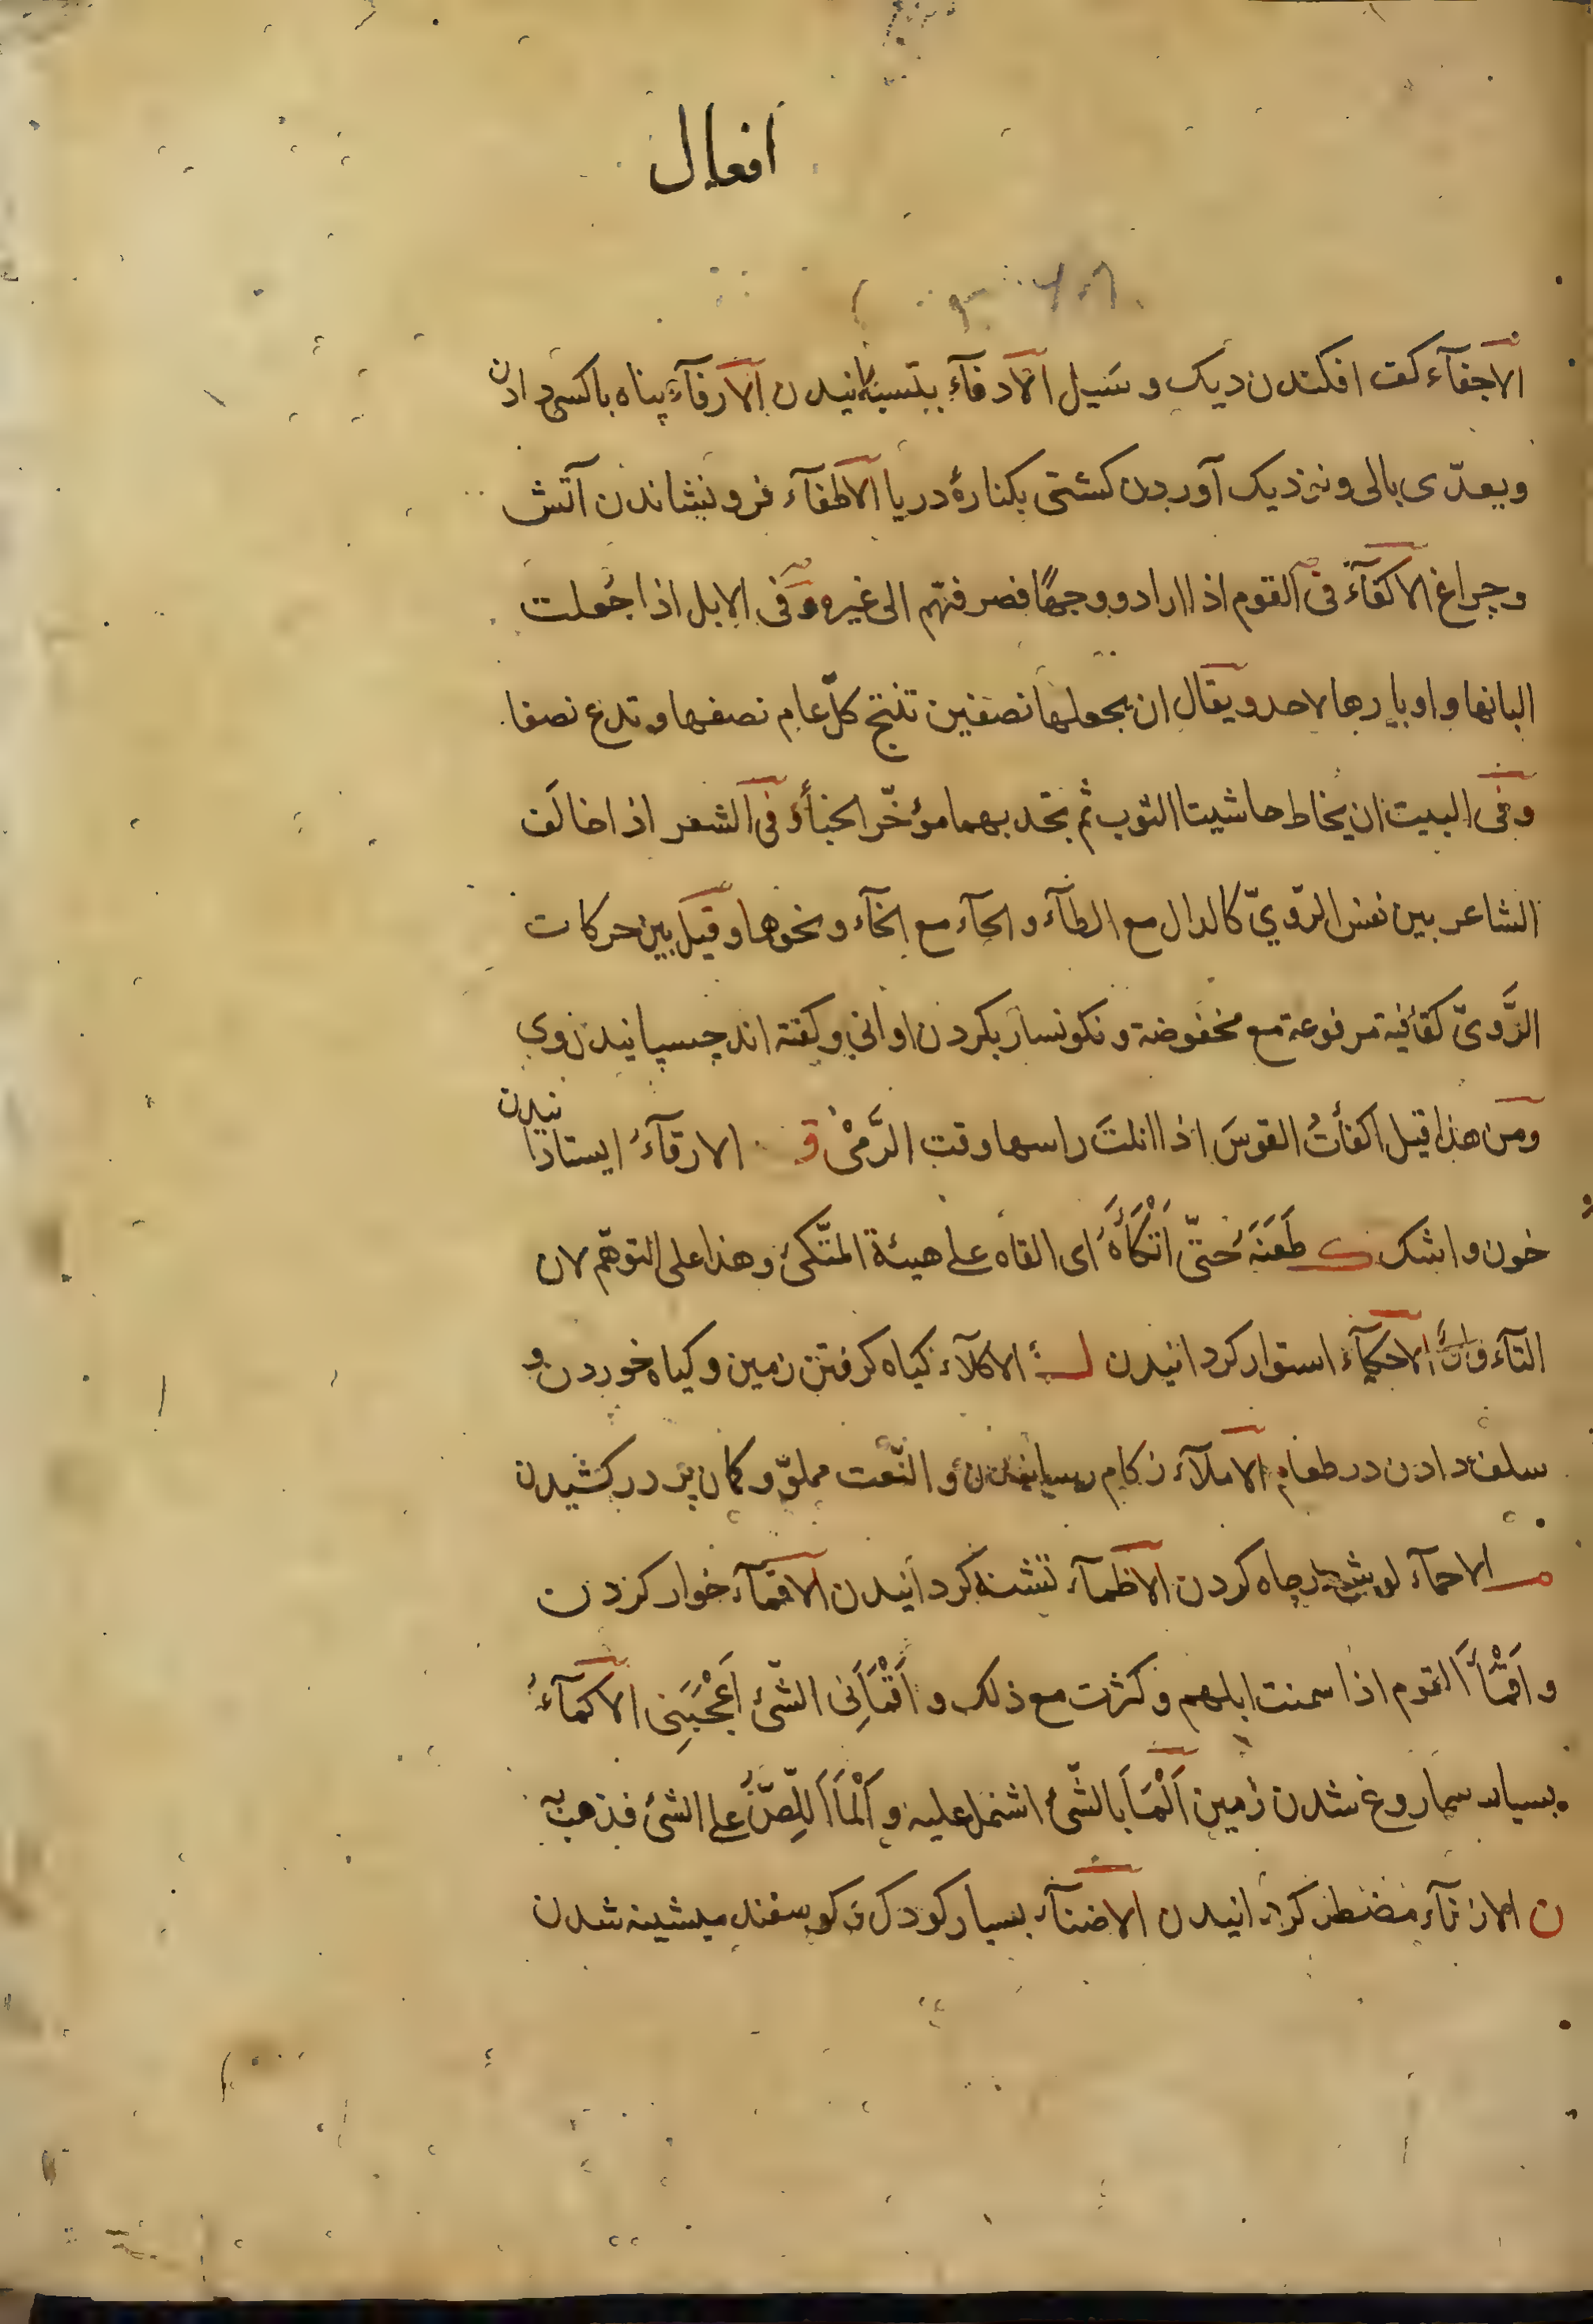 افعال
الاجفآء کفت افکندن دیک و سَیل الادفآء بتسبانیدن الارفآء پناه باکسی دادن
ویعدّی بالی و نزدیک آوردن کشتی بکنارهٔ دریا الاطفآء فرو نشاندن آتش
و چراغ الاکفآء فی القوم اذا ارادو وجهًا فصرفتهم الی غیره و فی الابل اذا جُعلت
البانها و اوبارها لاحد ویقال ان یجعلها نصفین تنتج کلّ عام نصفها و تدع نصفا
و فی البیت ان یخاط حاشیتا الثوب ثم تخد بهما مؤخّر الخبأ و فی الشعر اذا خالَف
الشاعر بین نفس الرّویّ کالدال مع الطآء و الحآء مع الخآء و نحوها و قیل بین حرکات
الرَّویّ کقافیة مرفوعة مع مخفوضة و نکونسار بکردن اوانی و کفته اند چسپانیدن روی
ومن هذا قیل اکفأتُ القوسَ اذا انلتَ راسها وقت الرَّمْیِ ق الارقآءُ ایستادانیدن
خون و اشک ک طَعَنَهُ حَتّی اَتْکَأَهُ ای القاه علی هیئة المتّکئ و هذا علی التوهّم لان
التآء الاحکآء استوار کردانیدن ل الاکلآء کیاه کرفتن زمین و کیاه خوردن و
سلف دادن در طعام الاملآء زکام رسانیدن و النّعت مملوّ و کمان پر در کشیدن
م الاحمآء لوش در چاه کردن الاظمآء تشنه کردانیدن الاقمآء خوار کردن
و اَقْمَأَ القوم اذا سمنت ابلهم و کثرت مع ذلک و اَقْمَأَنِی الشّئ اَعْجَبَنِی الاکمآءُ
بسیار سماروغ شدن زمین اَلْمَأَ بالشّئ اشتمل علیه و اَلْمَأَ اللِّصُّ علی الشئ فذهب به
ن الازنآء مضطر کردانیدن الاضنآء بسیار کودک و کوسفند میشینه شدن